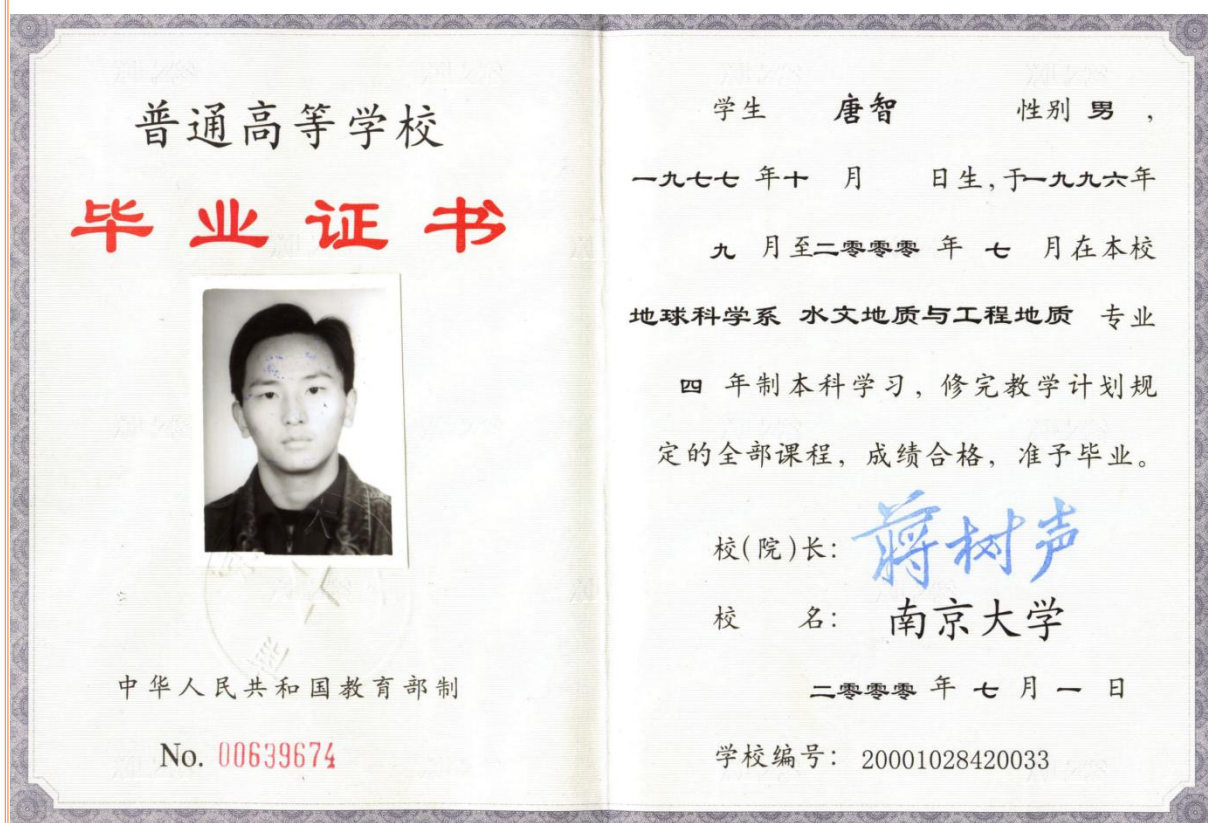 普通高等学校
毕业证书
中华人民共和国教育部制
No. 00639674
学生 唐智 性别 男 ,
一九七七 年十 月 日生,于一九九六年
九 月至二零零零 年 七 月在本校
地球科学系 水文地质与工程地质 专业
四 年制本科学习，修完教学计划规
定的全部课程，成绩合格，准予毕业。
校(院)长: 蒋树声
校 名: 南京大学
二零零零 年 七 月 一 日
学校编号: 20001028420033